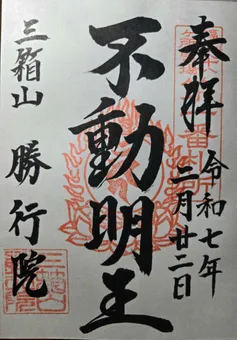 奉拝
令和七年
二月廿二日
不動明王
三箱山
勝行院